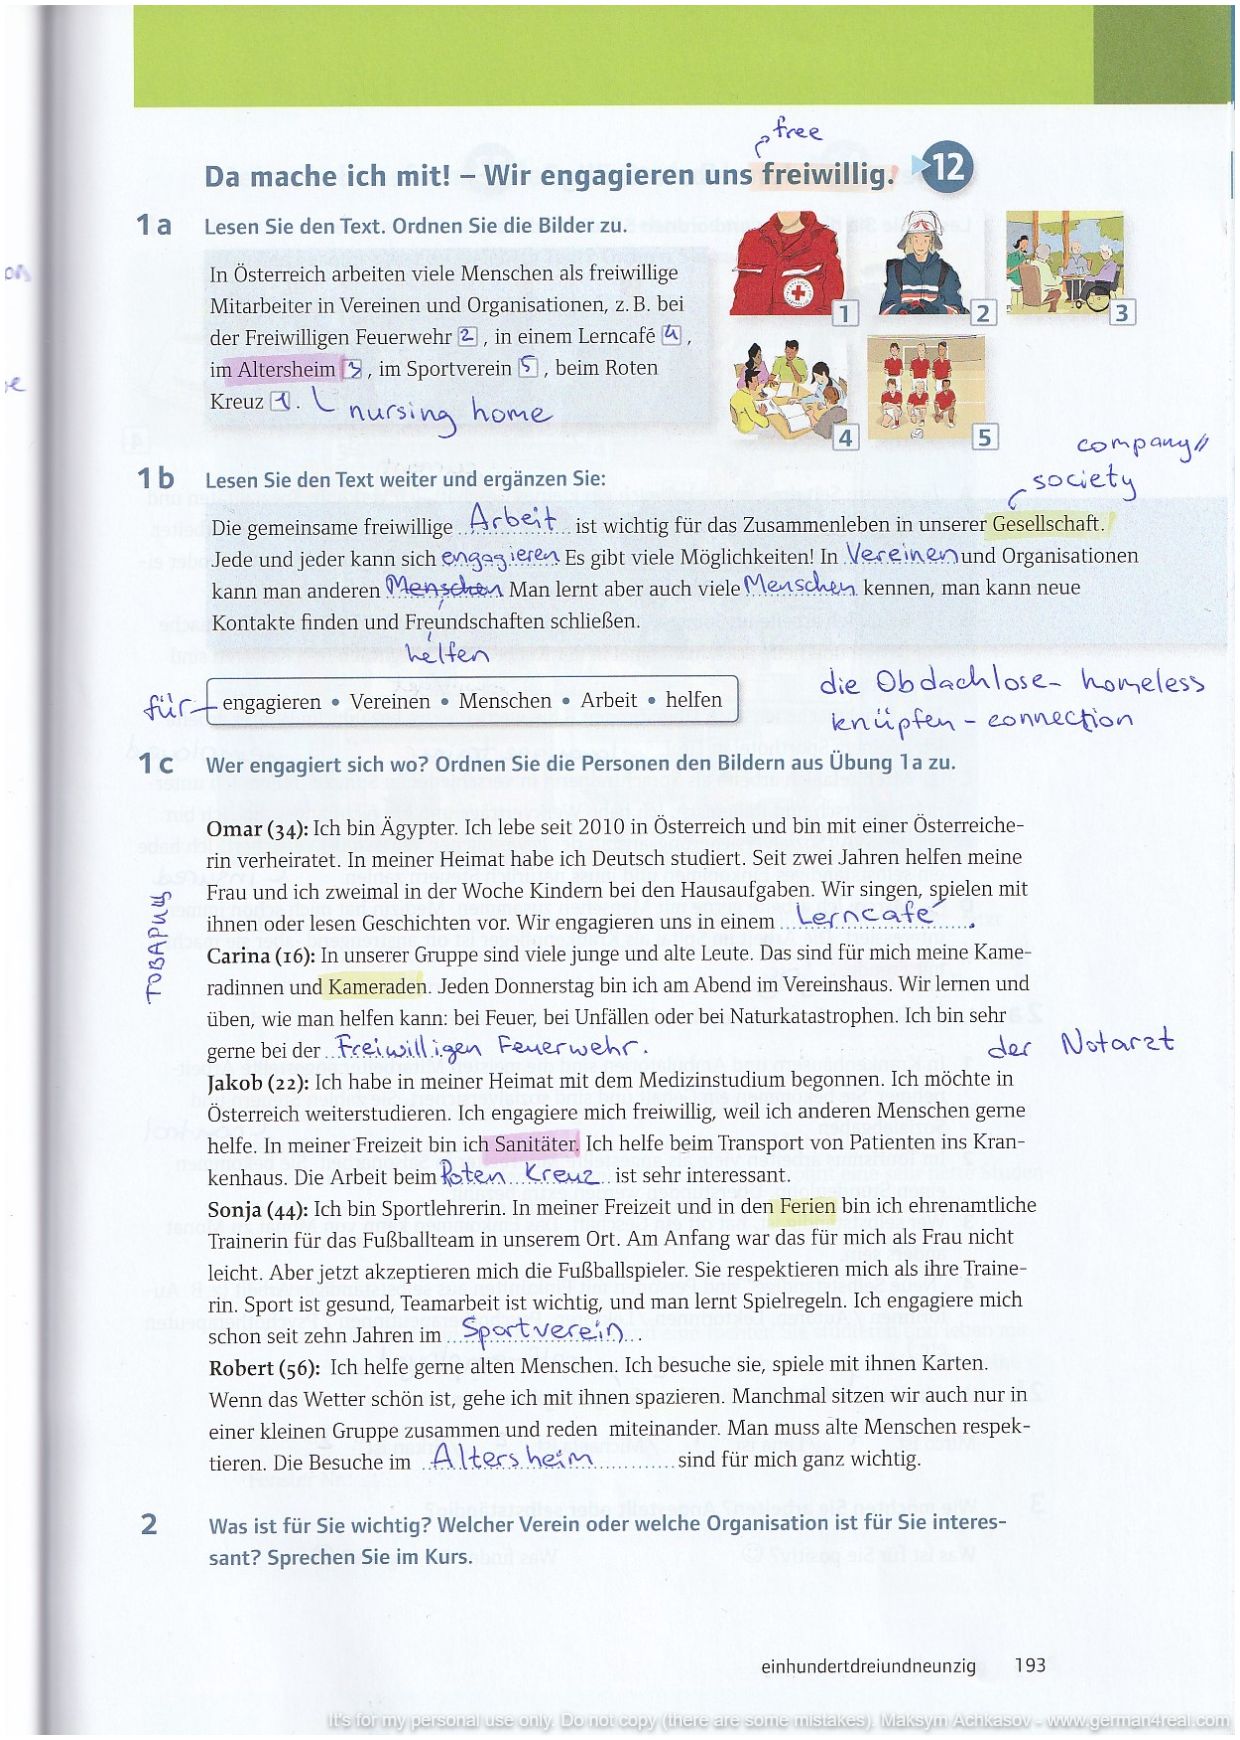 free
Da mache ich mit! – Wir engagieren uns freiwillig. 12
1a Lesen Sie den Text. Ordnen Sie die Bilder zu.
In Österreich arbeiten viele Menschen als freiwillige
Mitarbeiter in Vereinen und Organisationen, z. B. bei
der Freiwilligen Feuerwehr 2, in einem Lerncafé 4,
im Altersheim 3, im Sportverein 5, beim Roten
Kreuz 1.
nursing home
1 2 3
4 5
company //
society
1b Lesen Sie den Text weiter und ergänzen Sie:
Die gemeinsame freiwillige Arbeit ist wichtig für das Zusammenleben in unserer Gesellschaft.
Jede und jeder kann sich engagieren. Es gibt viele Möglichkeiten! In Vereinen und Organisationen
kann man anderen Menschen. Man lernt aber auch viele Menschen kennen, man kann neue
Kontakte finden und Freundschaften schließen.
helfen
für engagieren • Vereinen • Menschen • Arbeit • helfen
die Obdachlose – homeless
knüpfen – connection
1c Wer engagiert sich wo? Ordnen Sie die Personen den Bildern aus Übung 1a zu.
Omar (34): Ich bin Ägypter. Ich lebe seit 2010 in Österreich und bin mit einer Österreiche-
rin verheiratet. In meiner Heimat habe ich Deutsch studiert. Seit zwei Jahren helfen meine
Frau und ich zweimal in der Woche Kindern bei den Hausaufgaben. Wir singen, spielen mit
ihnen oder lesen Geschichten vor. Wir engagieren uns in einem Lerncafé.
Carina (16): In unserer Gruppe sind viele junge und alte Leute. Das sind für mich meine Kame-
radinnen und Kameraden. Jeden Donnerstag bin ich am Abend im Vereinshaus. Wir lernen und
üben, wie man helfen kann: bei Feuer, bei Unfällen oder bei Naturkatastrophen. Ich bin sehr
gerne bei der Freiwilligen Feuerwehr.
товарищ
der Notarzt
Jakob (22): Ich habe in meiner Heimat mit dem Medizinstudium begonnen. Ich möchte in
Österreich weiterstudieren. Ich engagiere mich freiwillig, weil ich anderen Menschen gerne
helfe. In meiner Freizeit bin ich Sanitäter. Ich helfe beim Transport von Patienten ins Kran-
kenhaus. Die Arbeit beim Roten Kreuz ist sehr interessant.
Sonja (44): Ich bin Sportlehrerin. In meiner Freizeit und in den Ferien bin ich ehrenamtliche
Trainerin für das Fußballteam in unserem Ort. Am Anfang war das für mich als Frau nicht
leicht. Aber jetzt akzeptieren mich die Fußballspieler. Sie respektieren mich als ihre Traine-
rin. Sport ist gesund, Teamarbeit ist wichtig, und man lernt Spielregeln. Ich engagiere mich
schon seit zehn Jahren im Sportverein.
Robert (56): Ich helfe gerne alten Menschen. Ich besuche sie, spiele mit ihnen Karten.
Wenn das Wetter schön ist, gehe ich mit ihnen spazieren. Manchmal sitzen wir auch nur in
einer kleinen Gruppe zusammen und reden miteinander. Man muss alte Menschen respek-
tieren. Die Besuche im Altersheim sind für mich ganz wichtig.
2 Was ist für Sie wichtig? Welcher Verein oder welche Organisation ist für Sie interes-
sant? Sprechen Sie im Kurs.
einhundertdreiundneunzig 193
It's for my personal use only. Do not copy (there are some mistakes). Maksym Achkasov - www.german4real.com